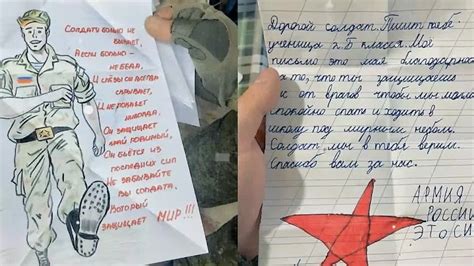 Солдату больно не
бывает,
А если больно -
не беда,
И слёзы он всегда
скрывает,
И не плачет
никогда,
Он защищает
край родимый,
Он бьётся из
последних сил
Не забывайте
вы солдата,
Который
защищает МИР!!!
Дорогой солдат. Пишет тебе
ученица 2 Б класса. Моё
письмо это моя благодарность
за то, что ты защищаешь
нас от врагов чтобы мы могли
спокойно спать и ходить в
школу под мирным небом.
Солдат, мы в тебя верим.
Спасибо вам за нас.
АРМИЯ
РОССИИ
ЭТО СИ